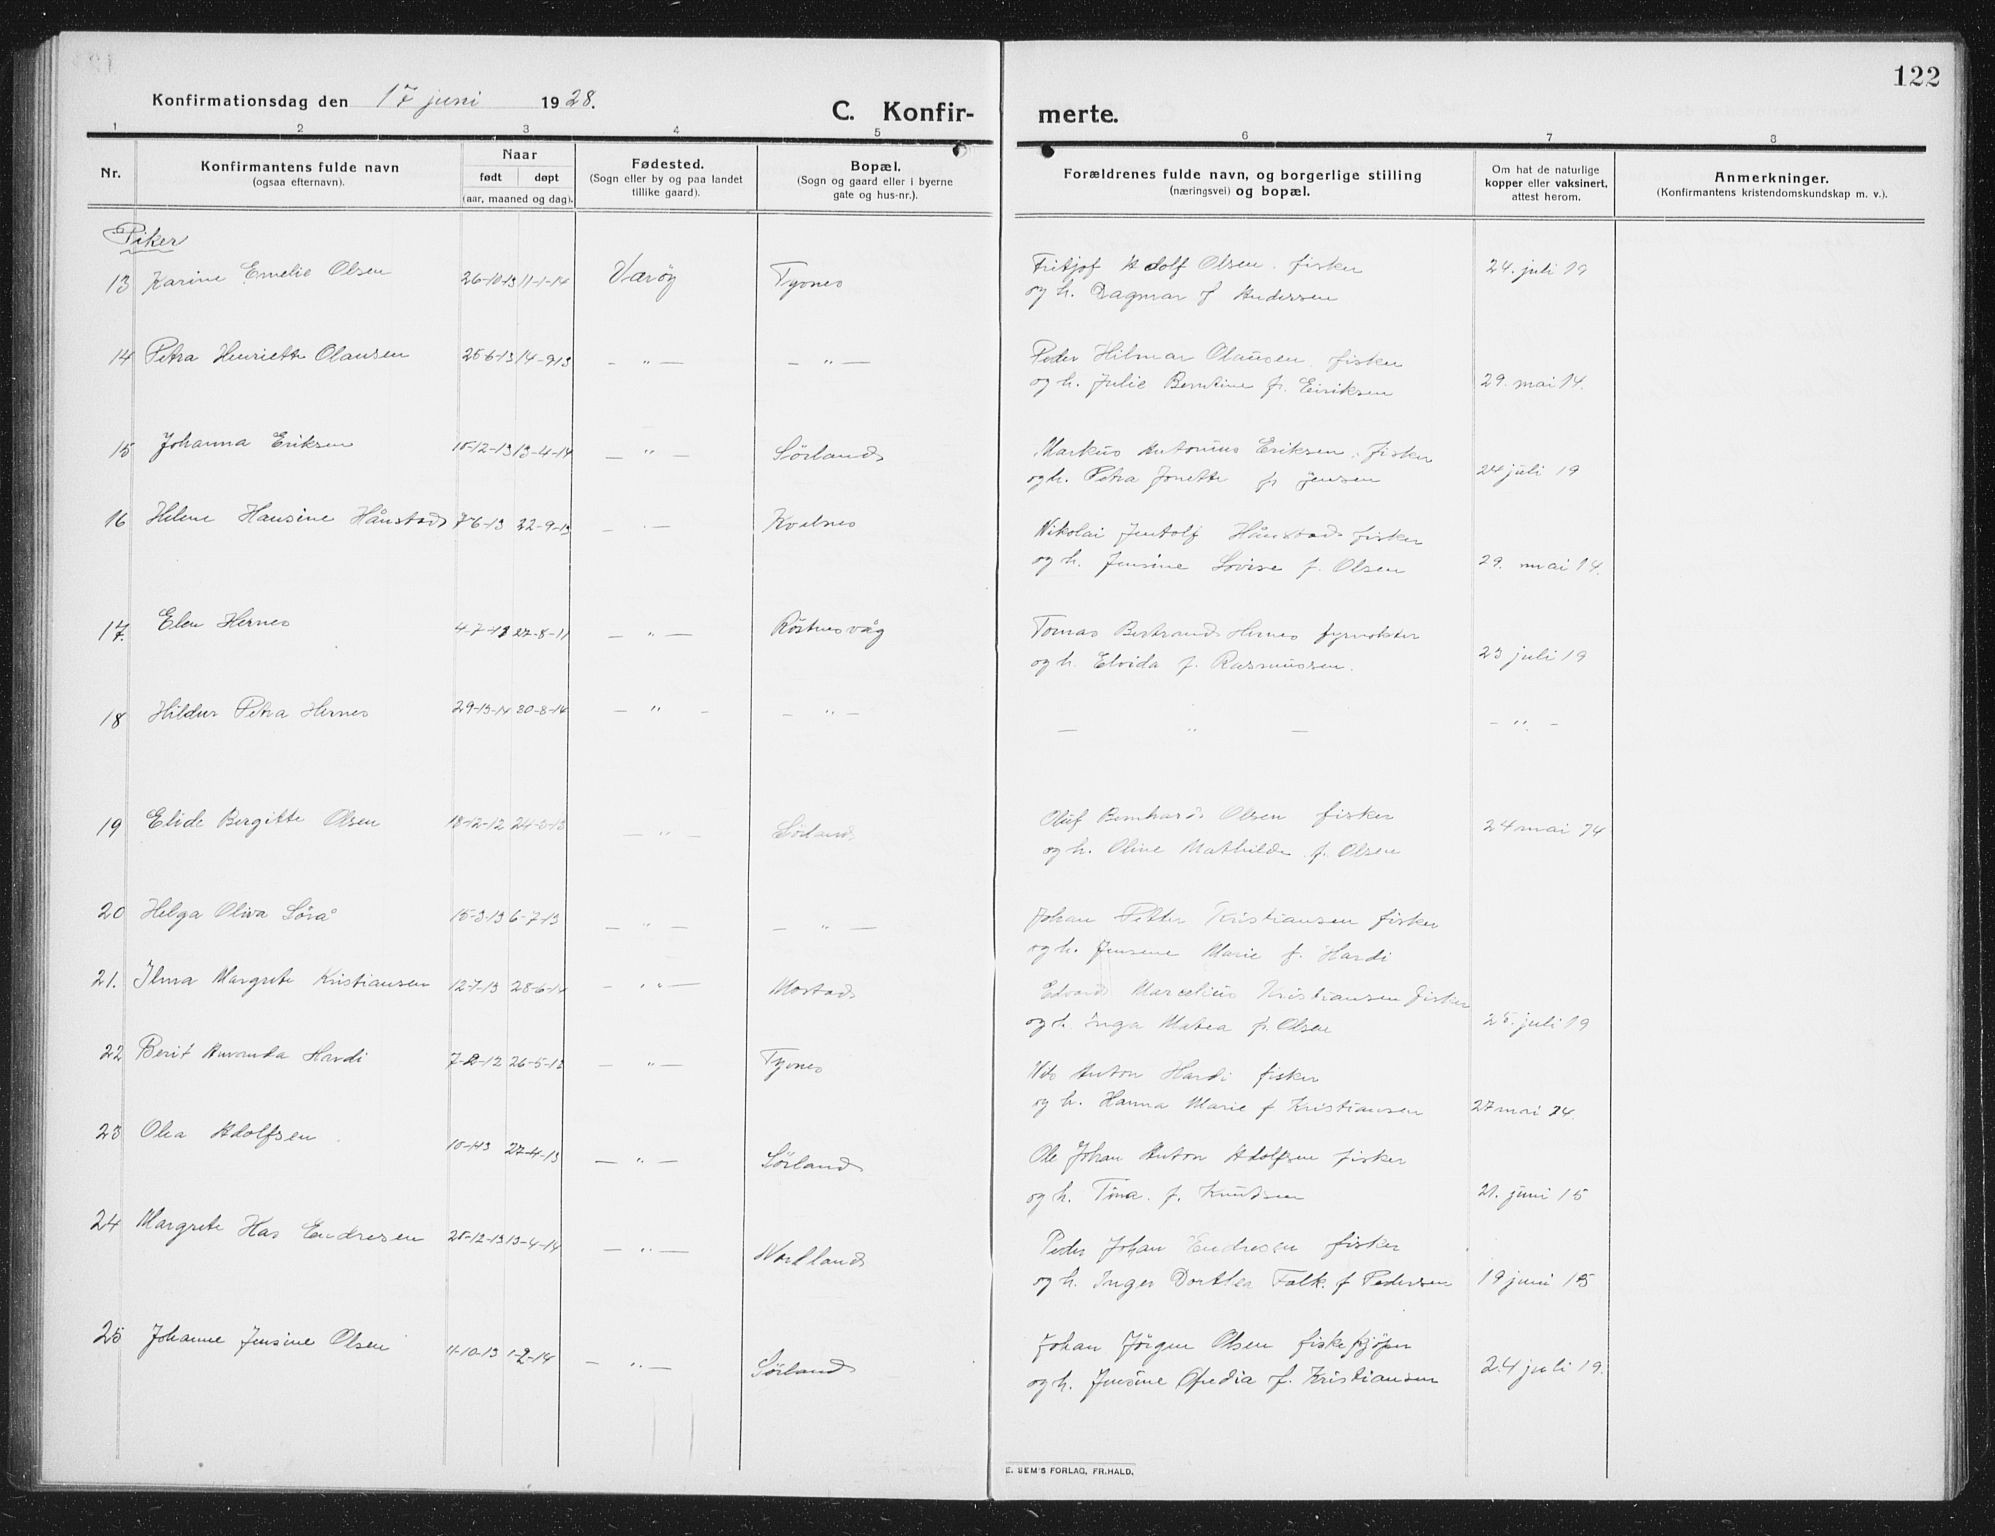 122
Konfirmationsdag den 17 juni 1928.
C. Konfir- merte.
1 2 3 4 5 6 7 8
Nr.
Konfirmantens fulde navn
(ogsaa efternavn).
Naar
født døpt
(aar, maaned og dag).
Fødested.
(Sogn eller by og paa landet
tillike gaard).
Bopæl.
(Sogn og gaard eller i byerne
gate og hus-nr.).
Forældrenes fulde navn, og borgerlige stilling
(næringsvei) og bopæl.
Om hat de naturlige
kopper eller vaksinert,
attest herom.
Anmerkninger.
(Konfirmantens kristendomskundskap m. v.).
Piker
13 Karine Emelie Olsen 26-10-13 11-1-14 Værøy Tyvnes Fritjof Adolf Olsen. fisker 24. juli 19
og h. Dagmar f Andersen
14 Petra Henriette Olausen 25-6-13 14-9-13 — " — — " — Peder Hilmar Olausen fisker
og h. Julie Berntine f. Eiriksen 29. mai 14.
15 Johanna Eriksen 15-12-13 13-4-14 — " — Sørland Markus Antonius Eriksen. fisker
og h. Petra Jonette f. Jensen 24 juli 19
16 Helene Hansine Hånstad 7-6-13 22-9-13 — " — Kvalnes Nikolai Jentolf Hånstad fisker
og h. Jensine Lovise f. Olsen 29. mai 14.
17. Elen Hernes 4-7-11 27-8-11 — " — Røstnesvåg Tomas Bertrand Hernes fyrvokter
og h. Elvida f. Rasmussen. 23 juli 19
18 Hildur Petra Hernes 30-8-14 — " — — " — — " — — " —
19 Elide Bergitte Olsen 18-12-12 24-3-13 — " — Sørland Oluf Bernhard Olsen fisker 24 mai 14
og h. Oline Mathilde f. Olsen
20 Helga Oliva Sørå 15-3-13 6-7-13 — " — — " — Johan Petter Kristiansen fisker
og h. Jensine Marie f. Hardi
21. Ilma Margrete Kristiansen 12-7-13 28-6-14 — " — Mostad Edvard Marcelius Kristiansen fisker
og h. Inga Matea f. Olsen 25. juli 19
22 Berit Amanda Hardi 26-5-12 — " — Tyvnes Anton Hardi fisker
og h. Hanna Marie f Kristiansen 27 mai 14.
23 Olea Adolfsen 27-4-13 — " — Sørland Ole Johan Anton Adolfsen fisker
og h. Tina. f. Knudsen 21. juni 15
24 Margrete Has Endresen 25-12-13 13-4-14 — " — Nordland Peder Johan Endresen fisker
og h. Inger Dorthea Falk. f Pedersen 19 juni 15
25 Johanne Jensine Olsen 11-10-13 1-2-14 — " — Sørland Johan Jørgen Olsen fiskekjøper
og h. Jensine f. Kristiansen 24 juli 19.
E. SEM'S FORLAG, FR.HALD.